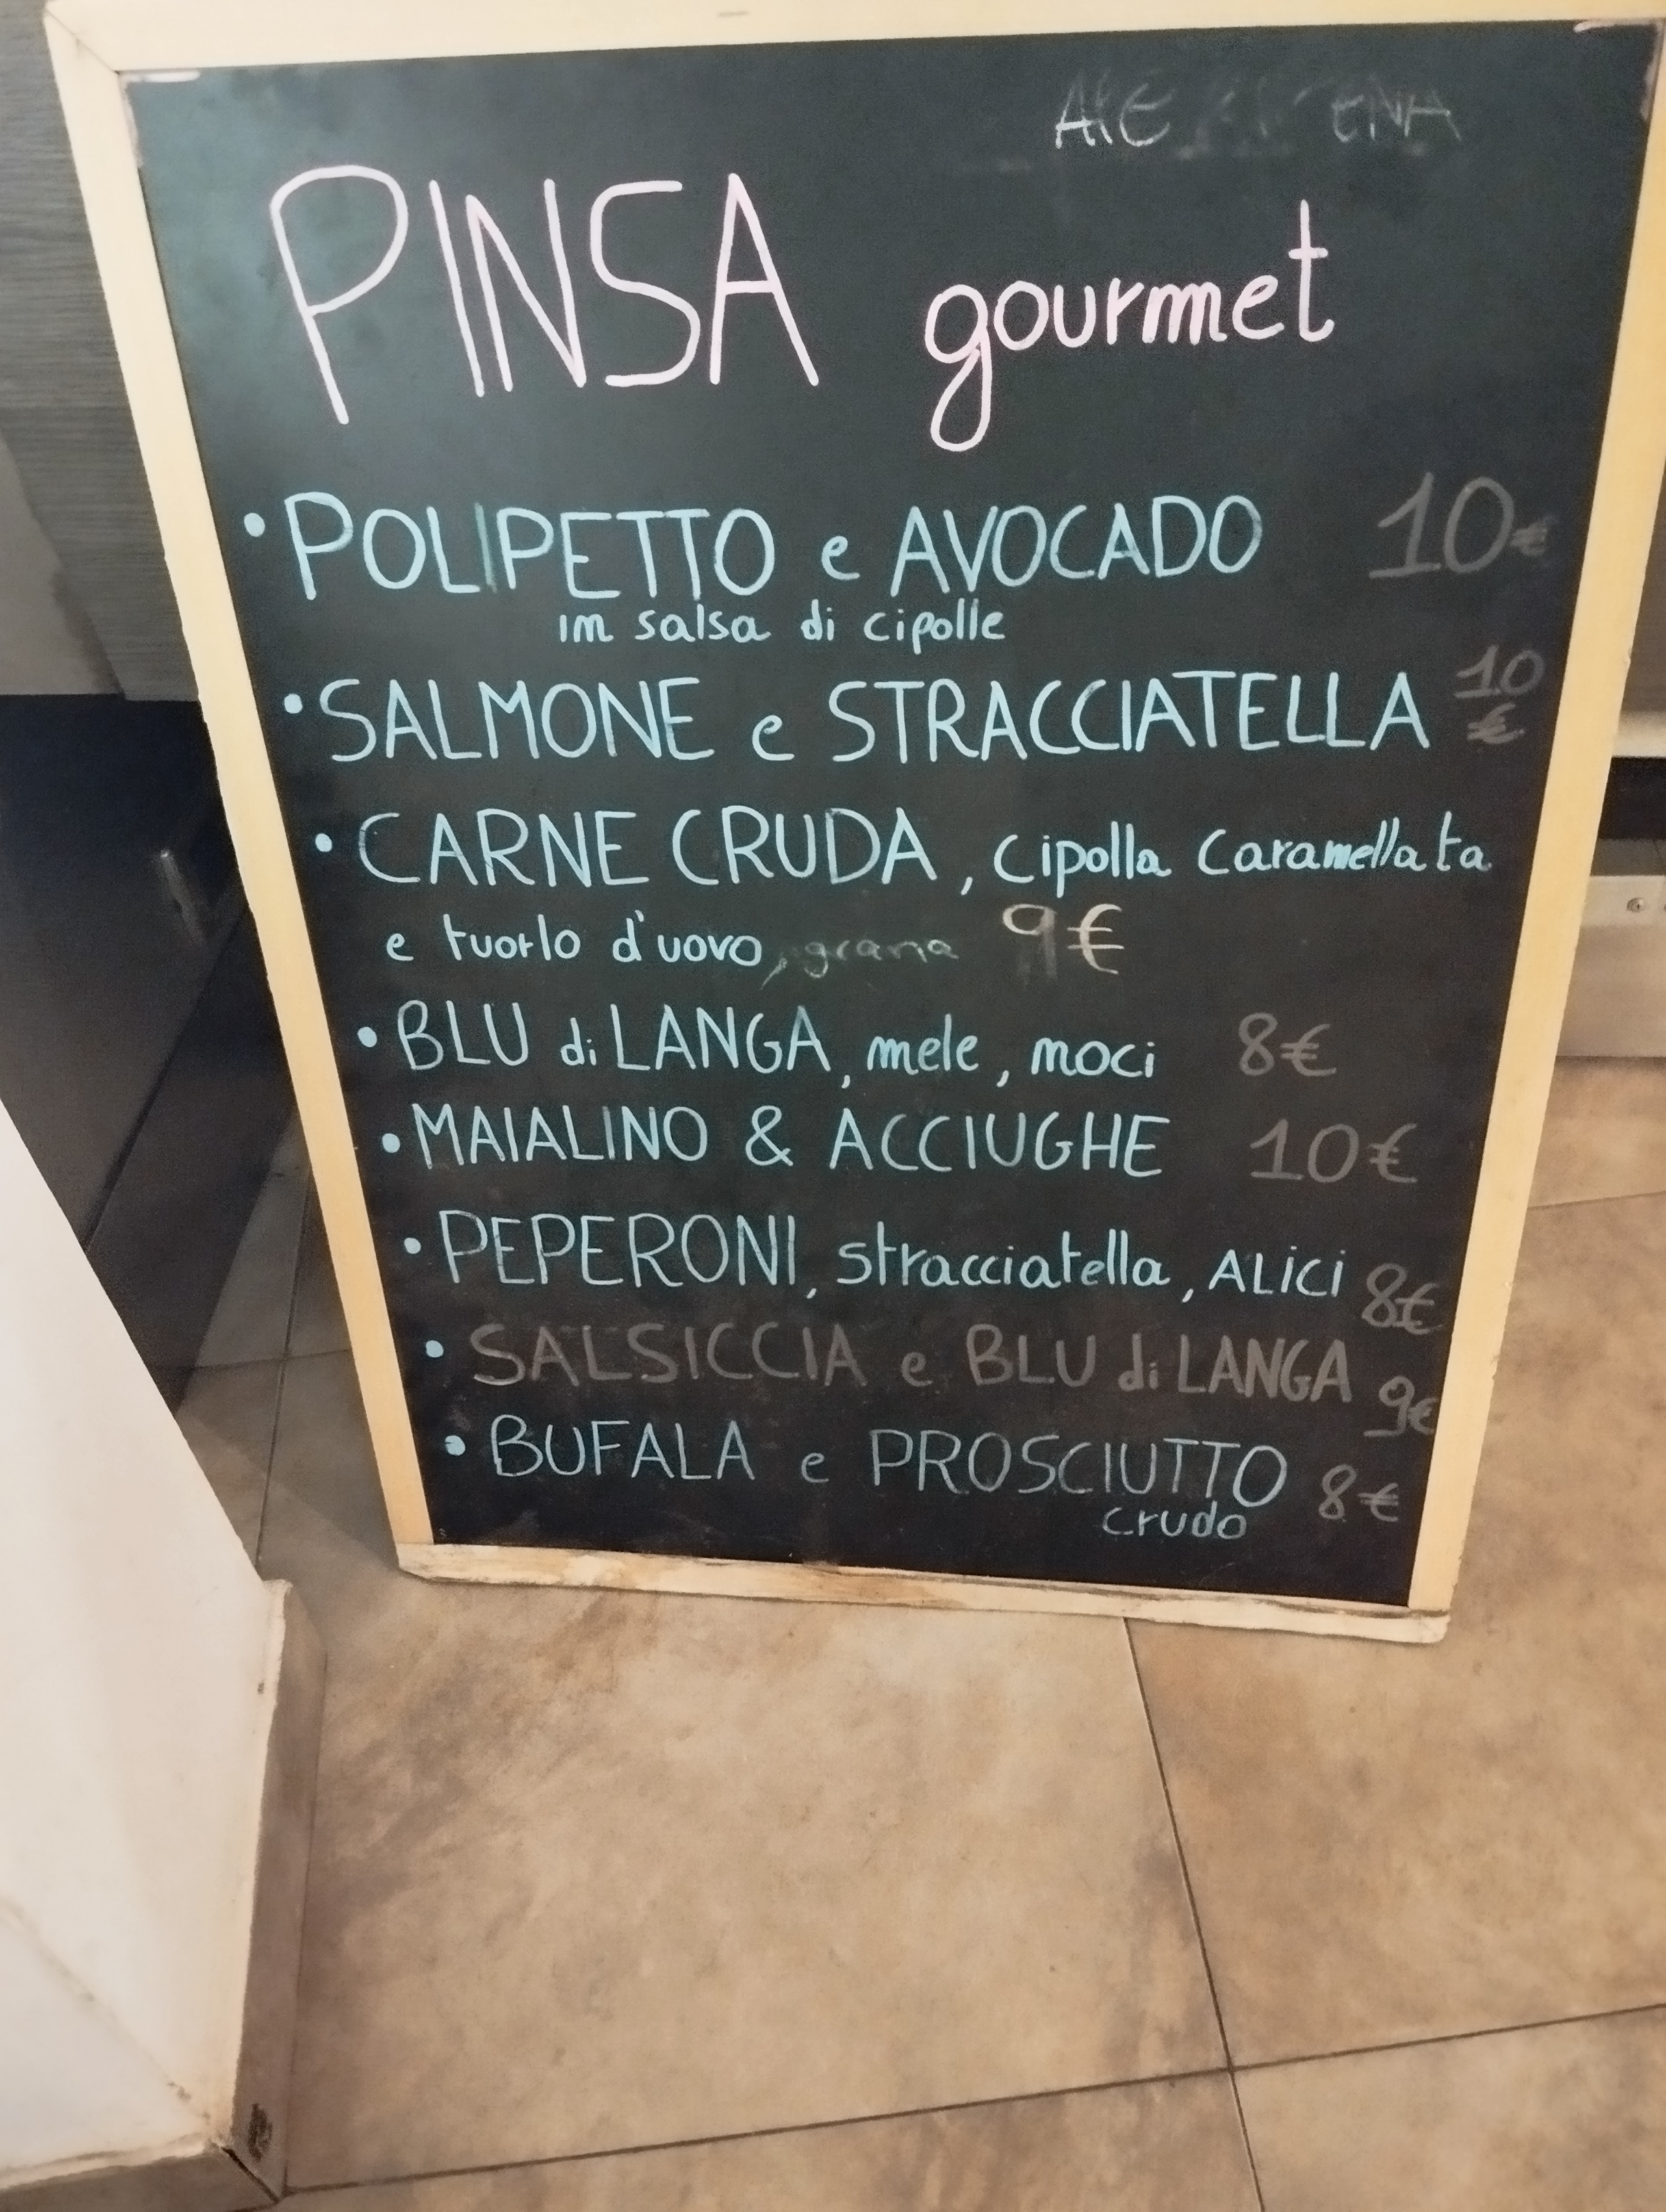 PINSA gourmet
• POLIPETTO e AVOCADO 10€
in salsa di cipolle
• SALMONE e STRACCIATELLA 10 €
• CARNE CRUDA, cipolla caramellata
e tuorlo d'uovo, grana 9€
• BLU di LANGA, mele, noci 8€
• MAIALINO & ACCIUGHE 10€
• PEPERONI, stracciatella, ALICI 8€
• SALSICCIA e BLU di LANGA 9€
• BUFALA e PROSCIUTTO 8€
crudo